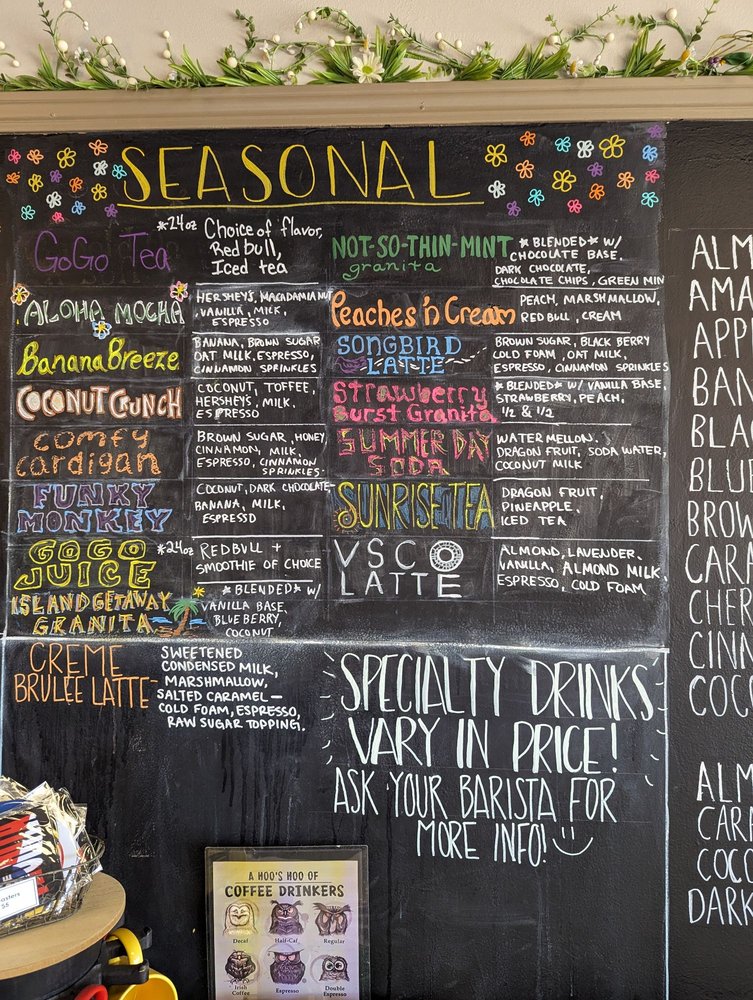 SEASONAL
GoGo Tea
*24oz Choice of flavor,
Red bull,
Iced tea
ALOHA MOCHA
HERSHEYS, MACADAMIA NUT
VANILLA, MILK,
ESPRESSO
Banana Breeze
BANANA, BROWN SUGAR
OAT MILK, ESPRESSO,
CINNAMON SPRINKLES
COCONUT CRUNCH
COCONUT, TOFFEE,
HERSHEYS, MILK,
ESPRESSO
comfy
cardigan
BROWN SUGAR, HONEY
CINNAMON, MILK,
ESPRESSO, CINNAMON
SPRINKLES
FUNKY
MONKEY
COCONUT, DARK CHOCOLATE
BANANA, MILK,
ESPRESSO
GOGO
JUICE
*24oz
REDBULL +
SMOOTHIE OF CHOICE
ISLAND GETAWAY
GRANITA
*BLENDED* W/
VANILLA BASE,
BLUEBERRY,
COCONUT
CREME
BRULEE LATTE
SWEETENED
CONDENSED MILK,
MARSHMALLOW,
SALTED CARAMEL
COLD FOAM, ESPRESSO,
RAW SUGAR TOPPING.
NOT-SO-THIN-MINT
granita
*BLENDED* W/
CHOCOLATE BASE,
DARK CHOCOLATE,
CHOCOLATE CHIPS, GREEN MIN
Peaches 'n Cream
PEACH, MARSHMALLOW,
RED BULL, CREAM
SONGBIRD
LATTE
BROWN SUGAR, BLACK BERRY
COLD FOAM, OAT MILK,
ESPRESSO, CINNAMON SPRINKLES
Strawberry
Burst Granita
*BLENDED* W/ VANILLA BASE,
STRAWBERRY, PEACH,
1/2 & 1/2
SUMMER DAY
SODA
WATER MELLON,
DRAGON FRUIT, SODA WATER,
COCONUT MILK
SUNRISE TEA
DRAGON FRUIT,
PINEAPPLE,
ICED TEA
VSCO
LATTE
ALMOND, LAVENDER,
VANILLA, ALMOND MILK,
ESPRESSO, COLD FOAM
SPECIALTY DRINKS
VARY IN PRICE!
ASK YOUR BARISTA FOR
MORE INFO!
ALM
AMA
APP
BAN
BLA
BLUE
BROW
CARA
CHER
CINN
COCO
ALM
CARA
COCO
DARK
A HOO'S HOO OF
COFFEE DRINKERS
Decaf Half-Caf Regular
Irish
Coffee
Espresso
Double
Espresso